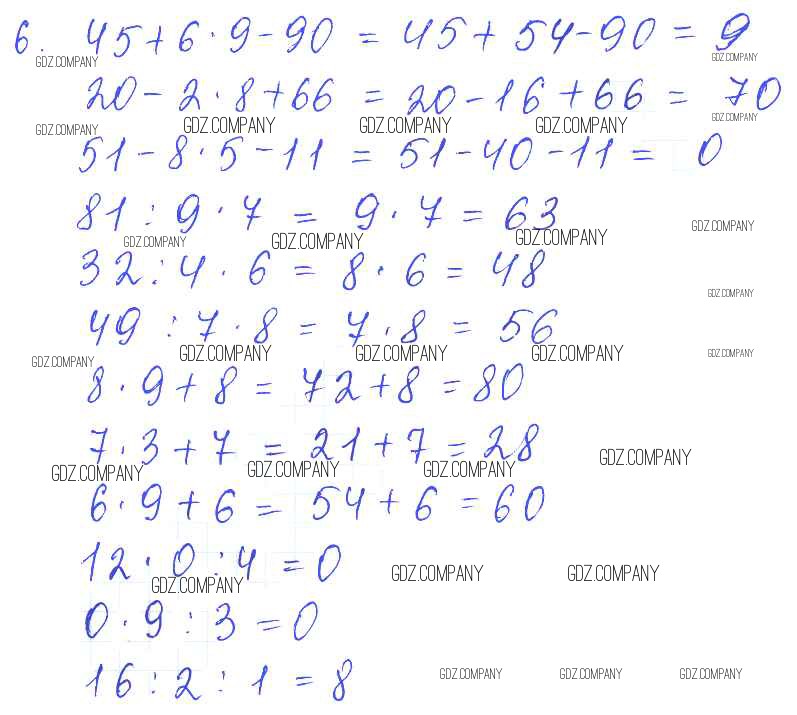 6. 45 + 6 · 9 - 90 = 45 + 54 - 90 = 9
GDZ.COMPANY GDZ.COMPANY
20 - 2 · 8 + 66 = 20 - 16 + 66 = 70
GDZ.COMPANY GDZ.COMPANY GDZ.COMPANY GDZ.COMPANY GDZ.COMPANY
51 - 8 · 5 - 11 = 51 - 40 - 11 = 0
81 : 9 · 7 = 9 · 7 = 63
GDZ.COMPANY GDZ.COMPANY GDZ.COMPANY GDZ.COMPANY
32 : 4 · 6 = 8 · 6 = 48
GDZ.COMPANY
49 : 7 · 8 = 7 · 8 = 56
GDZ.COMPANY GDZ.COMPANY GDZ.COMPANY GDZ.COMPANY GDZ.COMPANY
8 · 9 + 8 = 72 + 8 = 80
7 · 3 + 7 = 21 + 7 = 28
GDZ.COMPANY GDZ.COMPANY GDZ.COMPANY GDZ.COMPANY
6 · 9 + 6 = 54 + 6 = 60
12 · 0 : 4 = 0
GDZ.COMPANY GDZ.COMPANY GDZ.COMPANY
0 · 9 : 3 = 0
16 : 2 : 1 = 8
GDZ.COMPANY GDZ.COMPANY GDZ.COMPANY